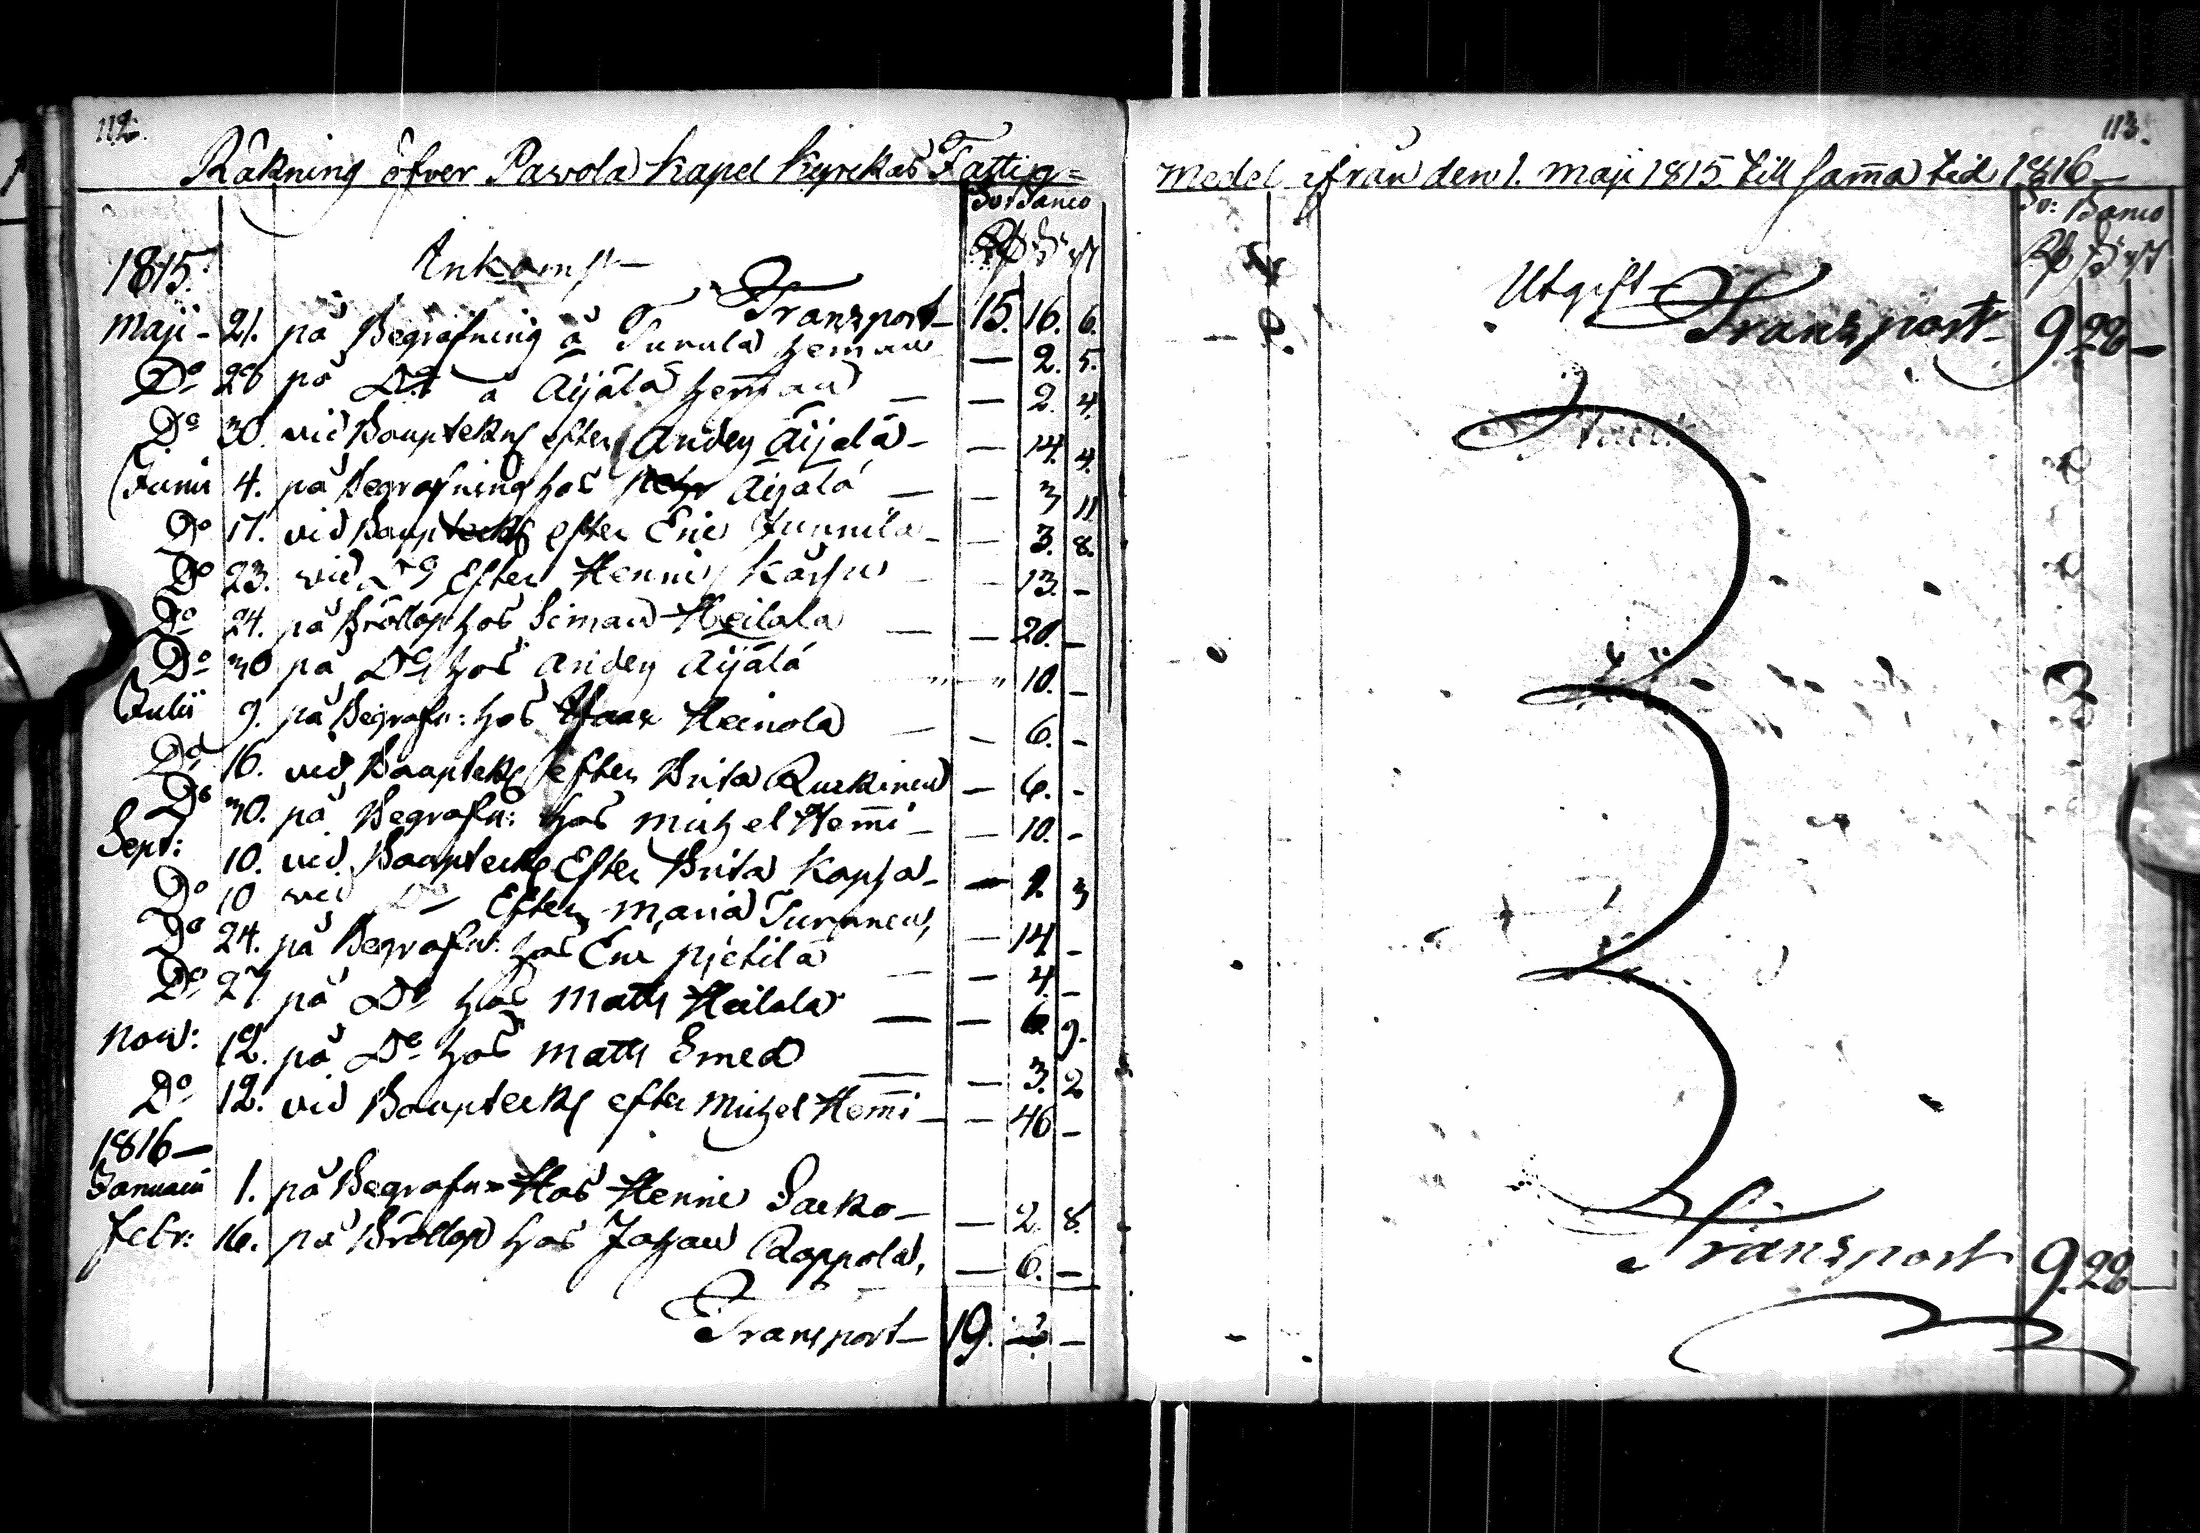 112.
Räkning öfver Pavola Kapel Kyrckas Fattig=
Sv: Banco
Inkomst
Rd s rst
1815.
Transport 15. 16. 6.
Maji 21. på Begrafning å Turula heman — 2. 5.
Do 28 på Do å Äijälä heman — — 2. 4.
Do 30. vid Bouptekng efter Anders Äijälä — — 14. 4.
Junii 4. på Begrafning hos Pehr Äijälä — — 3 11
Do 17. vid Bouptekng efter Eric Junnila — — 3. 8.
Do 23. vid Do Efter Henric Kärsu — — 13. —
Do 24. på Bröllop hos Simon Heilala — — 20. —
Do 30 på Do hos Anders Äijälä " " 10. —
Julii 9. på Begrafn: hos Isaac Heinola — — 6. —
Do 16. vid Bouptekng efter Brita Kurkinen — 6. —
Do 30. på Begrafn: hos Michel Hemmi — — 10. —
Sept: 10. vid Boupteckg Efter Brita Kopsa — — 2 3
Do 10 vid Do Efter Maria Turunen, — 14 —
Do 24. på Begrafn: hos Eric Pjetilä — — 4. —
Do 27 på Do hos Matts Heilala — — 6. 9.
Nov: 12. på Do hos Matts Smed — — 3. 2
Do 12. vid Boupteckg efter Michel Hemmi — — 46 —
1816 —
Januarii 1. på Begrafn= Hos Henric Sarko — — 2. 8.
Febr: 16. på Bröllop hos Johan Roppola, — 6. —
Transport — 19. —
113.
Medel ifrån den 1. Maji 1815 till samma tid 1816 —
Sv: Banco
Rd s rst
Utgift
Transport 9. 28 —
Transport 9. 28 —